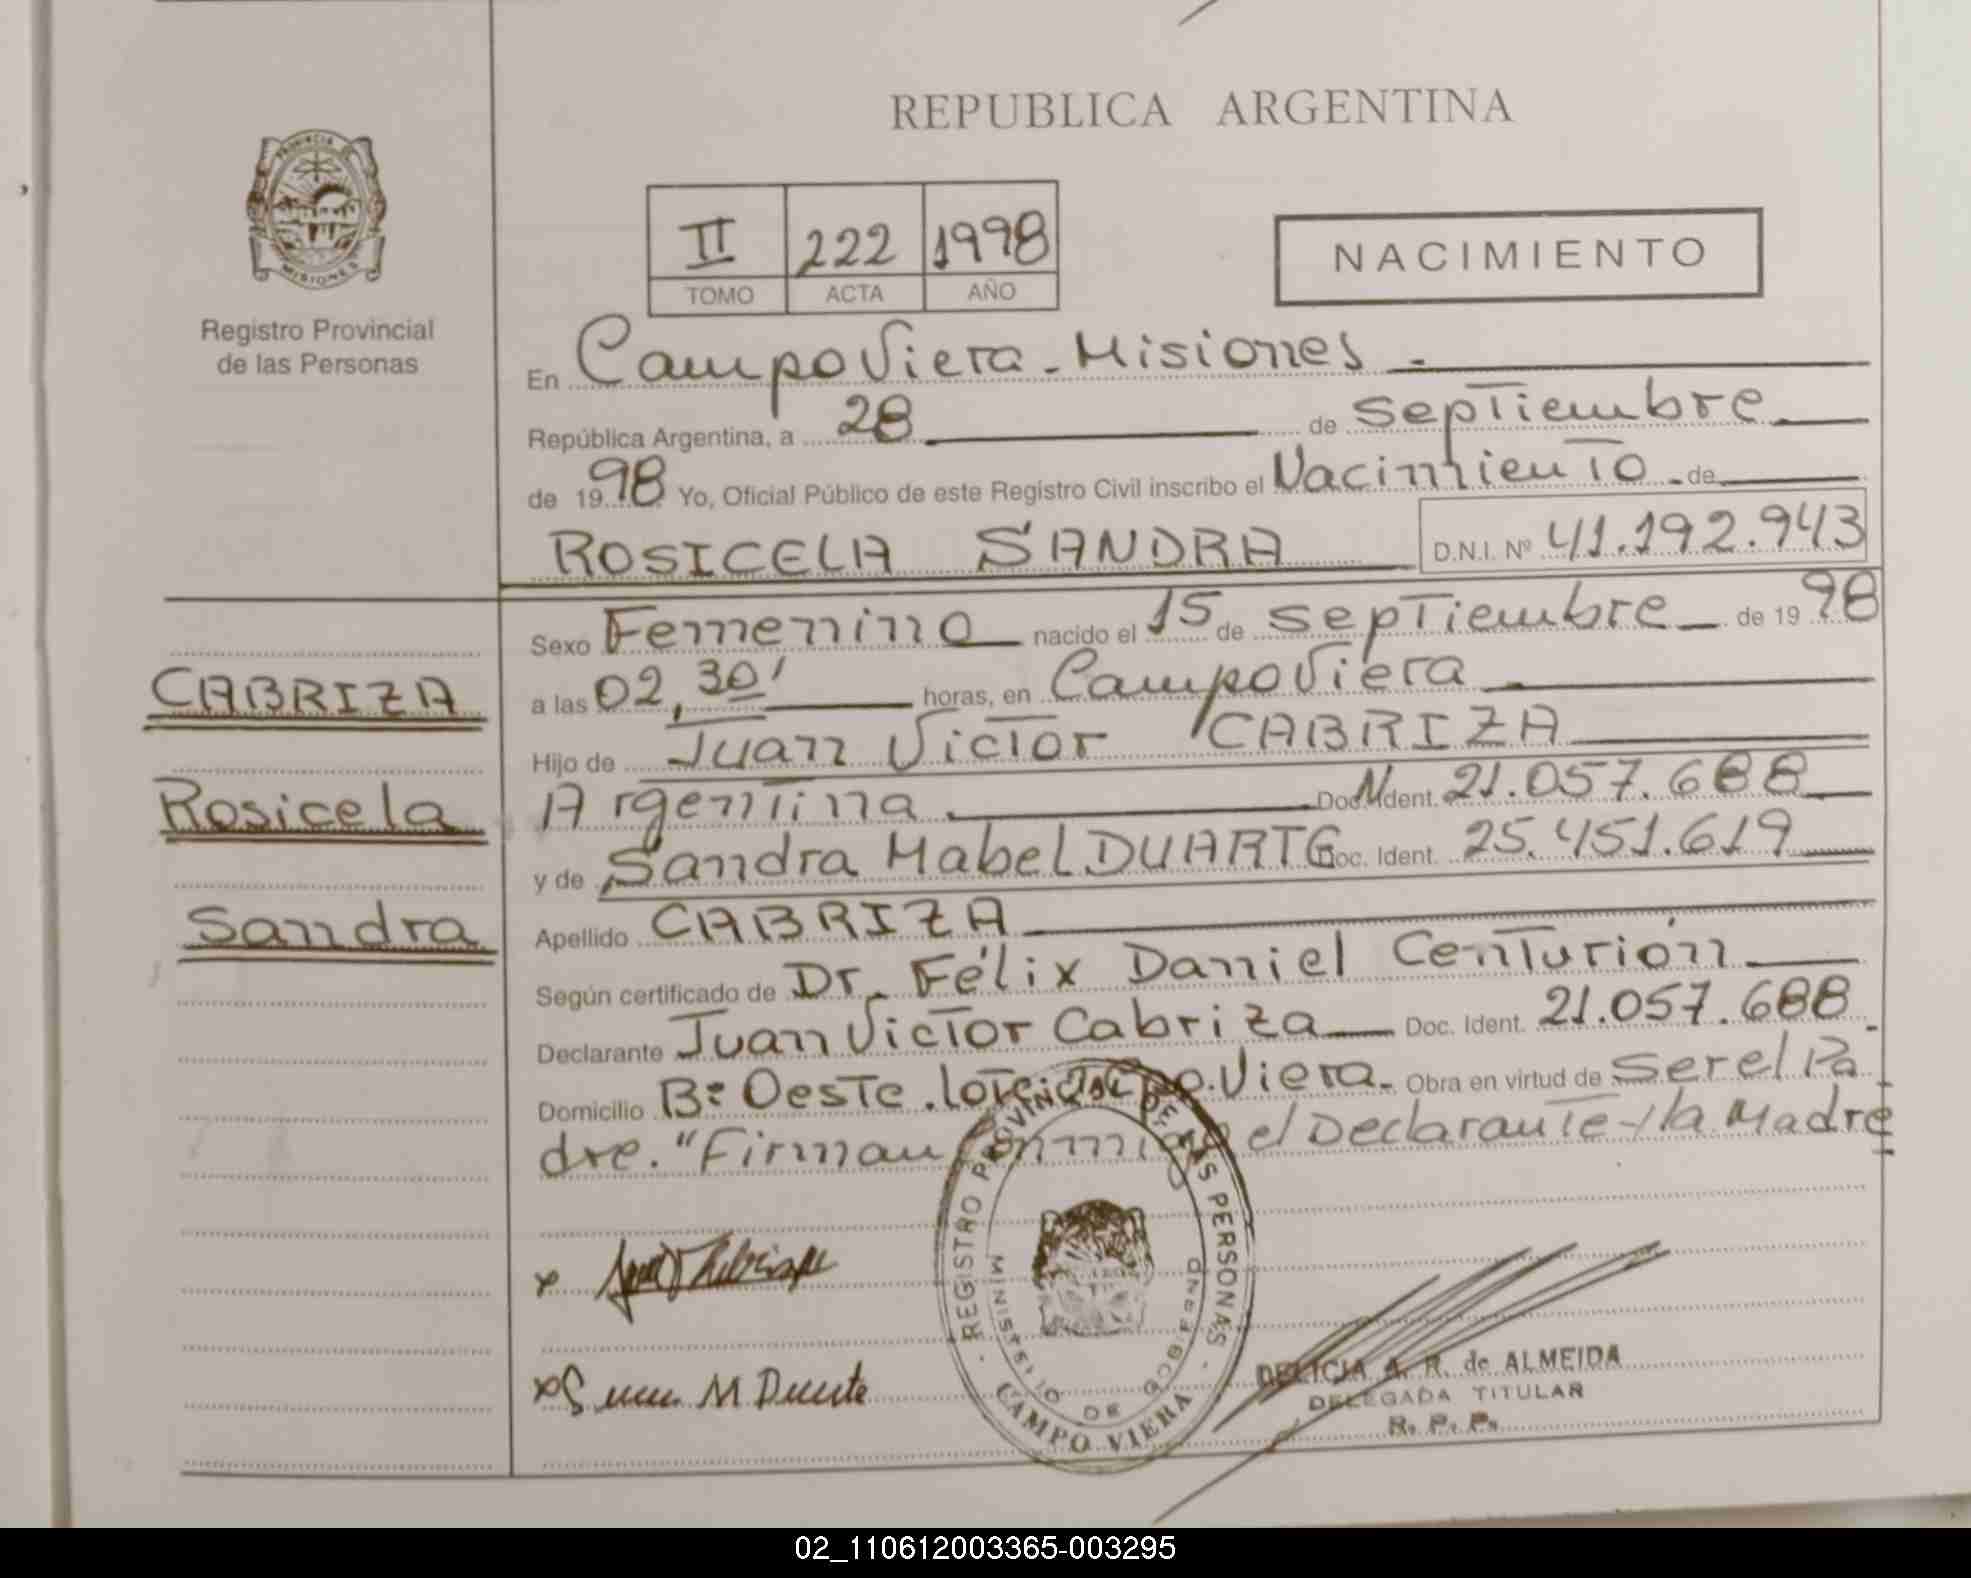 REPUBLICA ARGENTINA
PROVINCIA DE
MISIONES
Registro Provincial
de las Personas
II 222 1998
TOMO ACTA AÑO
NACIMIENTO
En Campo Viera - Misiones -
República Argentina, a 28 de septiembre
de 1998 Yo, Oficial Público de este Registro Civil inscribo el Nacimiento de
ROSICELA SANDRA D.N.I. Nº 41.192.943
Sexo Femenino nacido el 15 de septiembre de 1998
a las 02,30' horas, en Campo Viera
Hijo de Juan Victor CABRIZA
Argentina Doc. Ident. 21.057.688
y de Sandra Mabel DUARTE Doc. Ident. 25.451.619
Apellido CABRIZA
Según certificado de Dr. Félix Daniel Centurión
Declarante Juan Victor Cabriza Doc. Ident. 21.057.688.
Domicilio B: Oeste. Viera. Obra en virtud de ser el Pa
dre. "Firman el Declarante y la Madre
CABRIZA
Rosicela
Sandra
REGISTRO PROVINCIAL DE LAS PERSONAS
MINISTERIO DE GOBIERNO
CAMPO VIERA
x
x M Duarte
DELICIA A. R. de ALMEIDA
DELEGADA TITULAR
R. P. P.
02_110612003365-003295